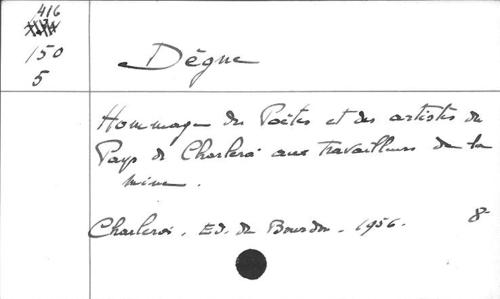 416
150
5
Dègne
Hommage des Poètes et des artistes du
Pays de Charleroi aux travailleurs de la
mine.
Charleroi. Ed. du Bourdon. 1956. 8°